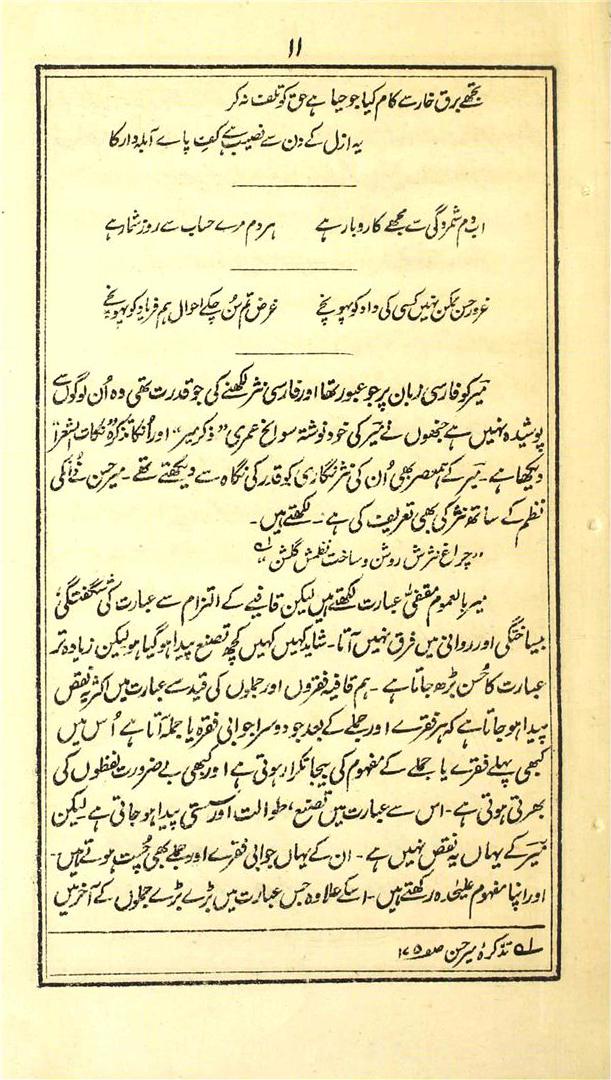 ۱۱
تجھے برق خار سے کام کیا جو جیا ہے حق کو تلف نہ کر
یہ ازل کے دن سے نصیب ہے کفِ پائے آبلہ دار کا
اب دم شمردگی سے مجھے کاروبار ہے ہر دم مرے حساب سے روز شمار ہے
غرورِ حسن ممکن نہیں کسی کی داد کو پہونچے غرض تم سُن چکے احوال ہم فریاد کو پہونچے
میرؔ کو فارسی زبان پر جو عبور تھا اور فارسی نثر لکھنے کی جو قدرت تھی وہ اُن لوگوں سے
پوشیدہ نہیں ہے جنھوں نے میرؔ کی خود نوشتہ سوانح عمری ”ذکر میر“ اور اُنکا تذکرۂ نکات الشعرا
دیکھا ہے۔ میرؔ کے ہمعصر بھی اُن کی نثر نگاری کو قدر کی نگاہ سے دیکھتے تھے۔ میر حسن نے اُنکی
نظم کے ساتھ نثر کی بھی تعریف کی ہے۔ لکھتے ہیں۔
”چراغ نثرش روشن و ساخت نظمش گلشن“ ؎۱
میر بالعموم مقفیٰ عبارت لکھتے ہیں لیکن قافیے کے التزام سے عبارت کی شگفتگی،
بیساختگی اور روانی میں فرق نہیں آتا۔ شاید کہیں کہیں کچھ تصنع پیدا ہو گیا ہو لیکن زیادہ تر
عبارت کا حُسن بڑھ جاتا ہے۔ ہم قافیہ فقروں اور جملوں کی قید سے عبارت میں اکثر یہ نقص
پیدا ہو جاتا ہے کہ ہر فقرے اور جملے کے بعد جو دوسرا جوابی فقرہ یا جملہ آتا ہے اُس میں
کبھی پہلے فقرے یا جملے کے مفہوم کی بیجا تکرار ہوتی ہے اور کبھی بے ضرورت لفظوں کی
بھرتی ہوتی ہے۔ اس سے عبارت میں تصنع، طوالت اور سستی پیدا ہو جاتی ہے۔ لیکن
میرؔ کے یہاں یہ نقص نہیں ہے۔ ان کے یہاں جوابی فقرے اور جملے بھی چُست ہوتے ہیں۔
اور اپنا مفہوم علیٰحدہ رکھتے ہیں۔ اسکے علاوہ جس عبارت میں بڑے بڑے جملوں کے آخر میں
؎۱ تذکرۂ میر حسن صفحہ ۱۷۵